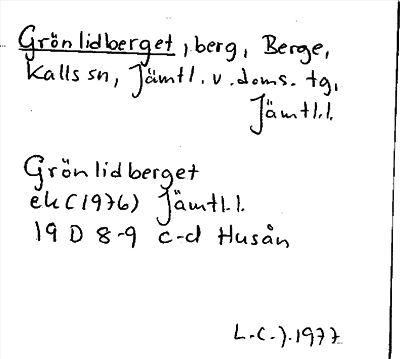 Grönlidberget, berg, Berge,
Kalls sn, Jämtl. v. doms. tg,
Jämtl.l.
Grönlidberget
ek (1976) Jämtl.l.
19 D 8-9 c-d Husån
L.C.J. 1977